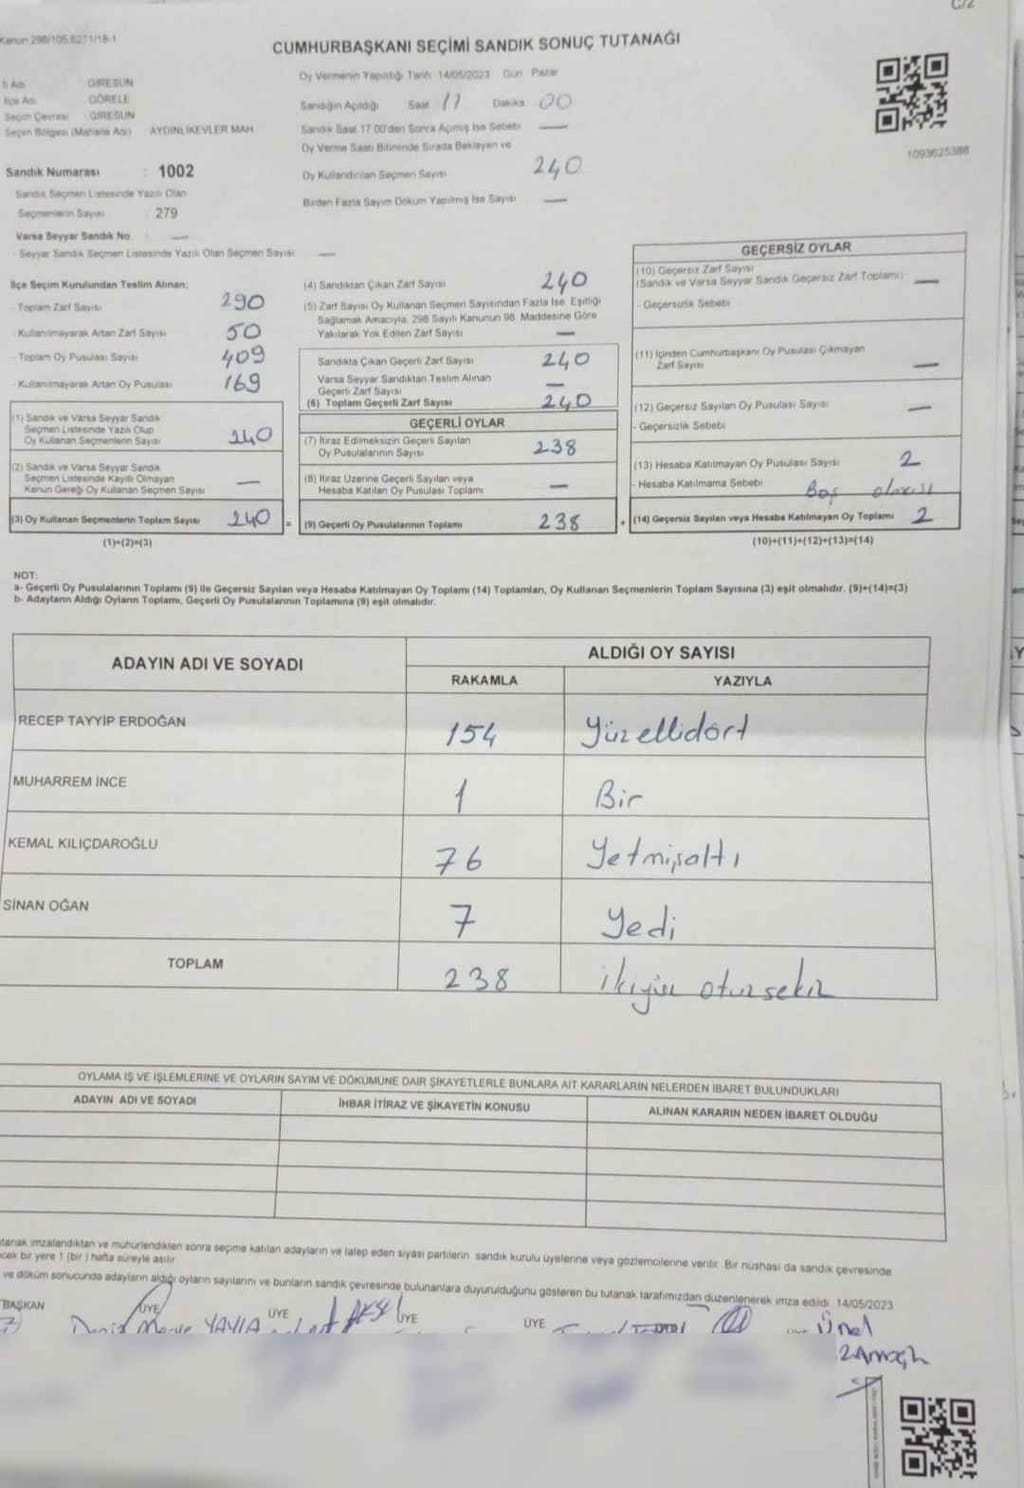 C/2
Kanun 298/105.6271/18-1
CUMHURBAŞKANI SEÇİMİ SANDIK SONUÇ TUTANAĞI
İli Adı GİRESUN
İlçe Adı GÖRELE
Seçim Çevresi GİRESUN
Seçim Bölgesi (Mahalle Adı) AYDINLIKEVLER MAH
Oy Vermenin Yapıldığı Tarih 14/05/2023 Gün Pazar
Sandığın Açıldığı Saat 17 Dakika 00
Sandık Saat 17.00'den Sonra Açılmış İse Sebebi —
Oy Verme Saati Bitiminde Sırada Bekleyen ve
Oy Kullandırılan Seçmen Sayısı 240
Birden Fazla Sayım Döküm Yapılmış İse Sayısı —
1093625388
Sandık Numarası : 1002
Sandık Seçmen Listesinde Yazılı Olan
Seçmenlerin Sayısı : 279
Varsa Seyyar Sandık No : —
- Seyyar Sandık Seçmen Listesinde Yazılı Olan Seçmen Sayısı —
İlçe Seçim Kurulundan Teslim Alınan;
- Toplam Zarf Sayısı 290
- Kullanılmayarak Artan Zarf Sayısı 50
- Toplam Oy Pusulası Sayısı 409
- Kullanılmayarak Artan Oy Pusulası 169
(1) Sandık ve Varsa Seyyar Sandık
Seçmen Listesinde Yazılı Olup
Oy Kullanan Seçmenlerin Sayısı 240
(2) Sandık ve Varsa Seyyar Sandık
Seçmen Listesinde Kayıtlı Olmayan
Kanun Gereği Oy Kullanan Seçmen Sayısı —
(3) Oy Kullanan Seçmenlerin Toplam Sayısı 240 =
(1)+(2)=(3)
(4) Sandıktan Çıkan Zarf Sayısı 240
(5) Zarf Sayısı Oy Kullanan Seçmen Sayısından Fazla İse, Eşitliği
Sağlamak Amacıyla, 298 Sayılı Kanunun 98. Maddesine Göre
Yakılarak Yok Edilen Zarf Sayısı —
Sandıkta Çıkan Geçerli Zarf Sayısı 240
Varsa Seyyar Sandıktan Teslim Alınan
Geçerli Zarf Sayısı —
(6) Toplam Geçerli Zarf Sayısı 240
GEÇERLİ OYLAR
(7) İtiraz Edilmeksizin Geçerli Sayılan
Oy Pusulalarının Sayısı 238
(8) İtiraz Üzerine Geçerli Sayılan veya
Hesaba Katılan Oy Pusulası Toplamı —
(9) Geçerli Oy Pusulalarının Toplamı 238 +
GEÇERSİZ OYLAR
(10) Geçersiz Zarf Sayısı
(Sandık ve Varsa Seyyar Sandık Geçersiz Zarf Toplamı) —
- Geçersizlik Sebebi
(11) İçinden Cumhurbaşkanı Oy Pusulası Çıkmayan
Zarf Sayısı —
(12) Geçersiz Sayılan Oy Pusulası Sayısı —
- Geçersizlik Sebebi
(13) Hesaba Katılmayan Oy Pusulası Sayısı 2
- Hesaba Katılmama Sebebi Boş olması
(14) Geçersiz Sayılan veya Hesaba Katılmayan Oy Toplamı 2
(10)+(11)+(12)+(13)=(14)
NOT:
a- Geçerli Oy Pusulalarının Toplamı (9) ile Geçersiz Sayılan veya Hesaba Katılmayan Oy Toplamı (14) Toplamları, Oy Kullanan Seçmenlerin Toplam Sayısına (3) eşit olmalıdır. (9)+(14)=(3)
b- Adayların Aldığı Oyların Toplamı, Geçerli Oy Pusulalarının Toplamına (9) eşit olmalıdır.
ADAYIN ADI VE SOYADI ALDIĞI OY SAYISI
RAKAMLA YAZIYLA
RECEP TAYYİP ERDOĞAN 154 Yüzellidört
MUHARREM İNCE 1 Bir
KEMAL KILIÇDAROĞLU 76 Yetmişaltı
SİNAN OĞAN 7 Yedi
TOPLAM 238 ikiyüz otuzsekiz
OYLAMA İŞ VE İŞLEMLERİNE VE OYLARIN SAYIM VE DÖKÜMÜNE DAİR ŞİKAYETLERLE BUNLARA AİT KARARLARIN NELERDEN İBARET BULUNDUKLARI
ADAYIN ADI VE SOYADI İHBAR İTİRAZ VE ŞİKAYETİN KONUSU ALINAN KARARIN NEDEN İBARET OLDUĞU
tanak imzalandıktan ve mühürlendikten sonra seçime katılan adayların ve talep eden siyasi partilerin sandık kurulu üyelerine veya gözlemcilerine verilir. Bir nüshası da sandık çevresinde
cek bir yere 1 (bir) hafta süreyle asılır.
ve döküm sonucunda adayların aldığı oyların sayılarını ve bunların sandık çevresinde bulunanlara duyurulduğunu gösteren bu tutanak tarafımızdan düzenlenerek imza edildi. 14/05/2023
BAŞKAN ÜYE ÜYE ÜYE ÜYE
Deniz Merve YAYLA Ünel